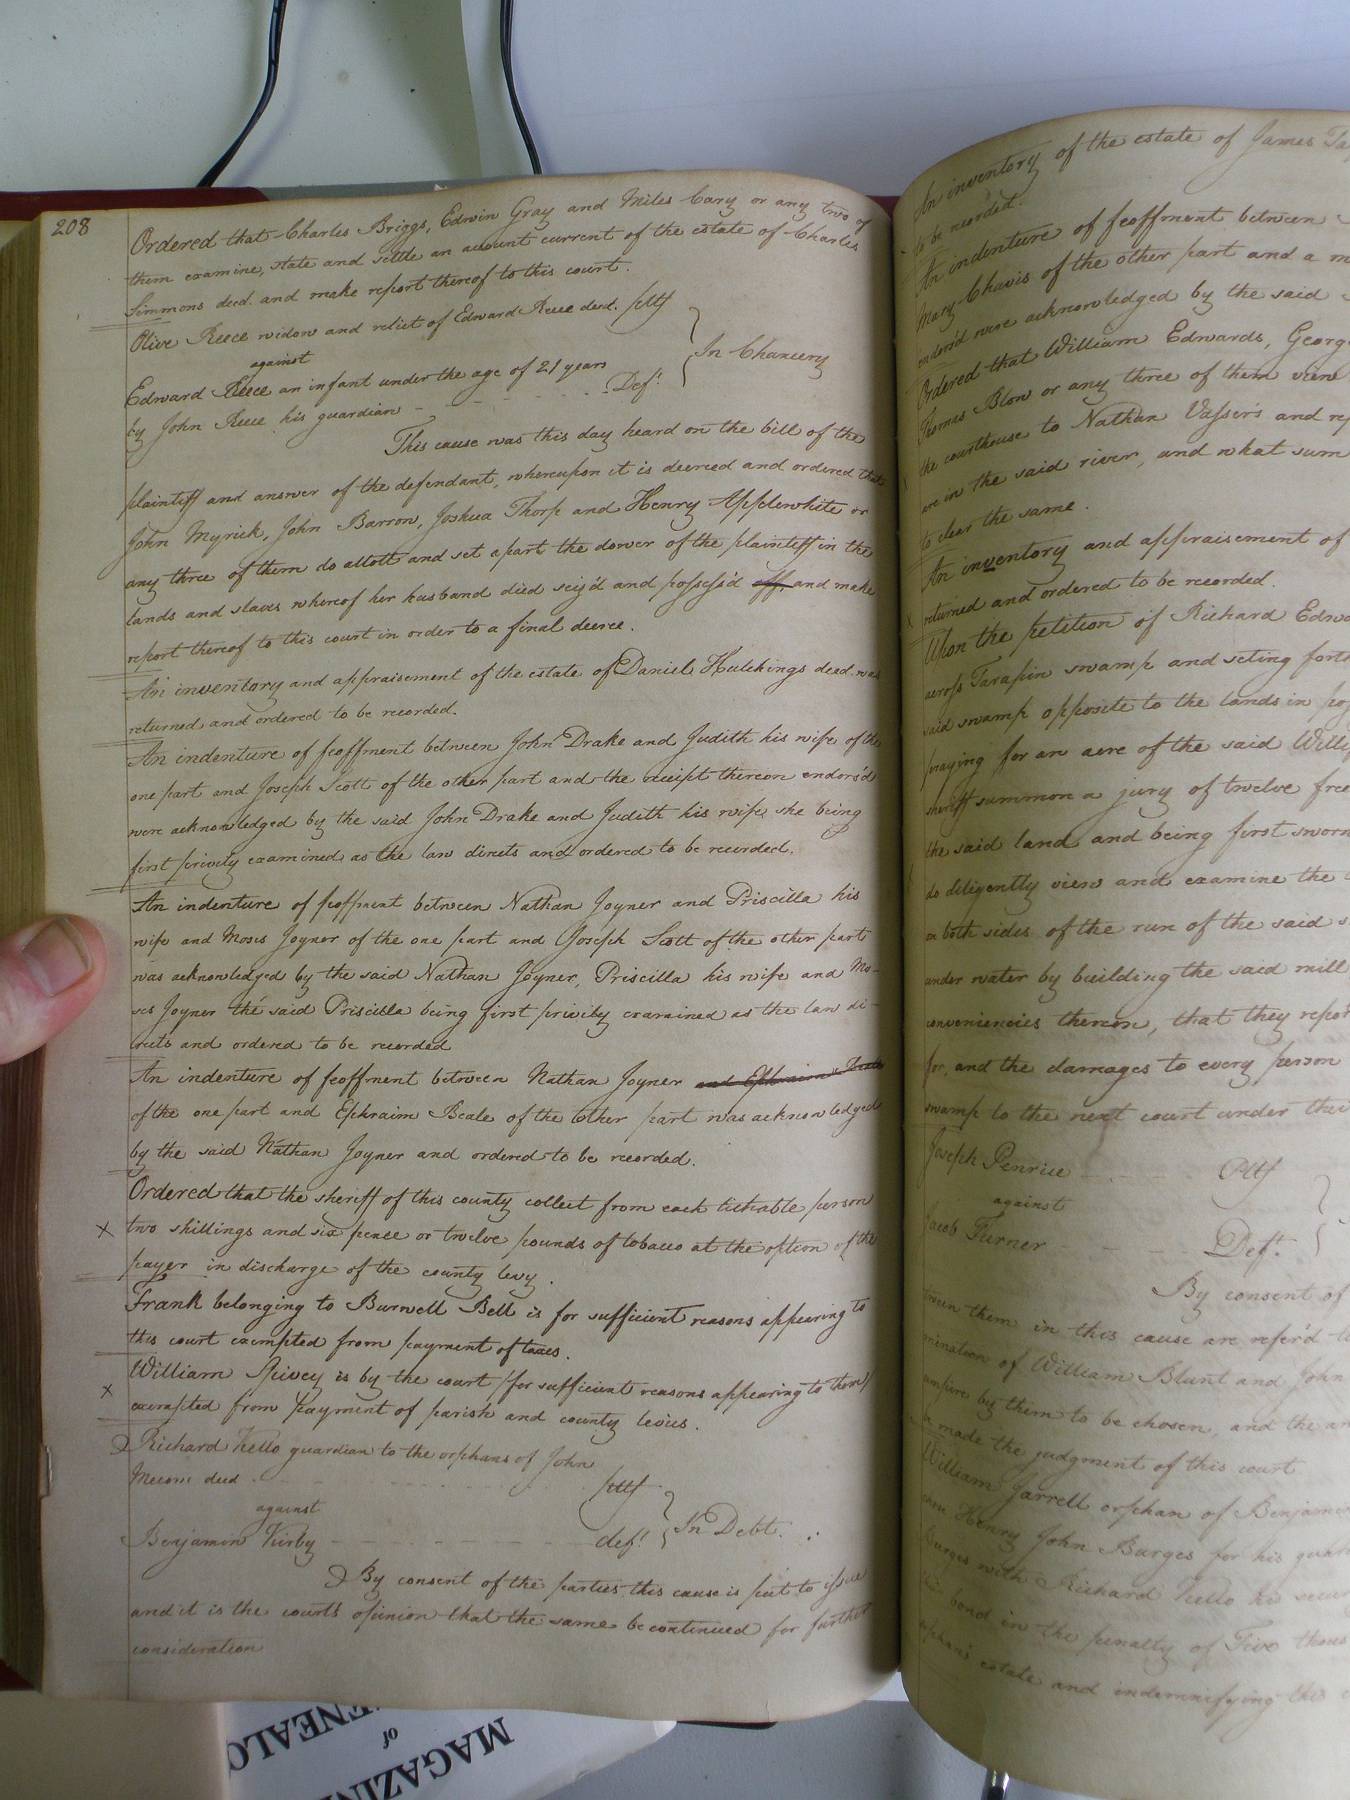 208
Ordered that Charles Briggs, Edwin Gray and Miles Cary or any two of
them examine, state and settle an account current of the estate of Charles
Simmons deced. and make report thereof to this court.
Olive Reece widow and relict of Edward Reece deced. pltf
against
In Chancery
Edward Reece an infant under the age of 21 years
by John Reece his guardian Def.t
This cause was this day heard on the bill of the
plaintiff and answer of the defendant, whereupon it is decreed and ordered that
John Myrick, John Barrow, Joshua Thorp and Henry Applewhite or
any three of them do allott and set apart the dower of the plaintiff in the
lands and slaves whereof her husband died seiz'd and possess'd off, and make
report thereof to this court in order to a final decree.
An inventory and appraisement of the estate of Daniel Hutchings deced. was
returned and ordered to be recorded.
An indenture of feoffment between John Drake and Judith his wife of the
one part and Joseph Scott of the other part and the receipt thereon endors'd
were acknowledged by the said John Drake and Judith his wife she being
first privily examined as the law directs and ordered to be recorded.
An indenture of feoffment between Nathan Joyner and Priscilla his
wife and Moses Joyner of the one part and Joseph Scott of the other part
was acknowledged by the said Nathan Joyner, Priscilla his wife and Mo-
ses Joyner the said Priscilla being first privily examined as the law di-
rects and ordered to be recorded
An indenture of feoffment between Nathan Joyner and Ephraim Beale
of the one part and Ephraim Beale of the other part was acknowledged
by the said Nathan Joyner and ordered to be recorded.
Ordered that the sheriff of this county collect from each tithable person
x two shillings and six pence or twelve pounds of tobacco at the option of the
payer in discharge of the county levy.
Frank belonging to Burwell Bell is for sufficient reasons appearing to
this court exempted from payment of taxes.
William Spivey is by the court (for sufficient reasons appearing to them)
x exempted from payment of parish and county levies.
Richard Kello guardian to the orphans of John
deced pltf
against
In Debt.
Benjamin Kirby def.t
By consent of the parties this cause is put to issue
and it is the courts opinion that the same be continued for further
consideration
An inventory of the estate of James
to be recorded.
An indenture of feoffment between
Mary Chavis of the other part and a
endors'd were acknowledged by the said
Ordered that William Edwards, Georg
Thomas Blow or any three of them view
the courthouse to Nathan Vasser's and
are in the said river, and what sum
to clear the same.
An inventory and appraisement of
returned and ordered to be recorded.
Upon the petition of Richard Edw
across Tarapin swamp and seting forth
said swamp opposite to the lands in
praying for an acre of the said
sheriff summon a jury of twelve free
the said land and being first sworn
do diligently view and examine the
on both sides of the run of the said s
under water by building the said mill
conveniencies thereon, that they repor
for, and the damages to every person
swamp to the next court under thei
Joseph Penrice Pltf
against
Jacob Turner Def.t
By consent of
tween them in this cause are refer'd
mination of William Blunt and John
umpire by them to be chosen, and the
made the judgment of this court
William Jarrell orphan of Benjamin
Henry John Burges for his guar
Burges with Richard Kello his secur
bond in the penalty of Five thous
orphan's estate and indemnifying this
MAGAZIN
of
ENEALO